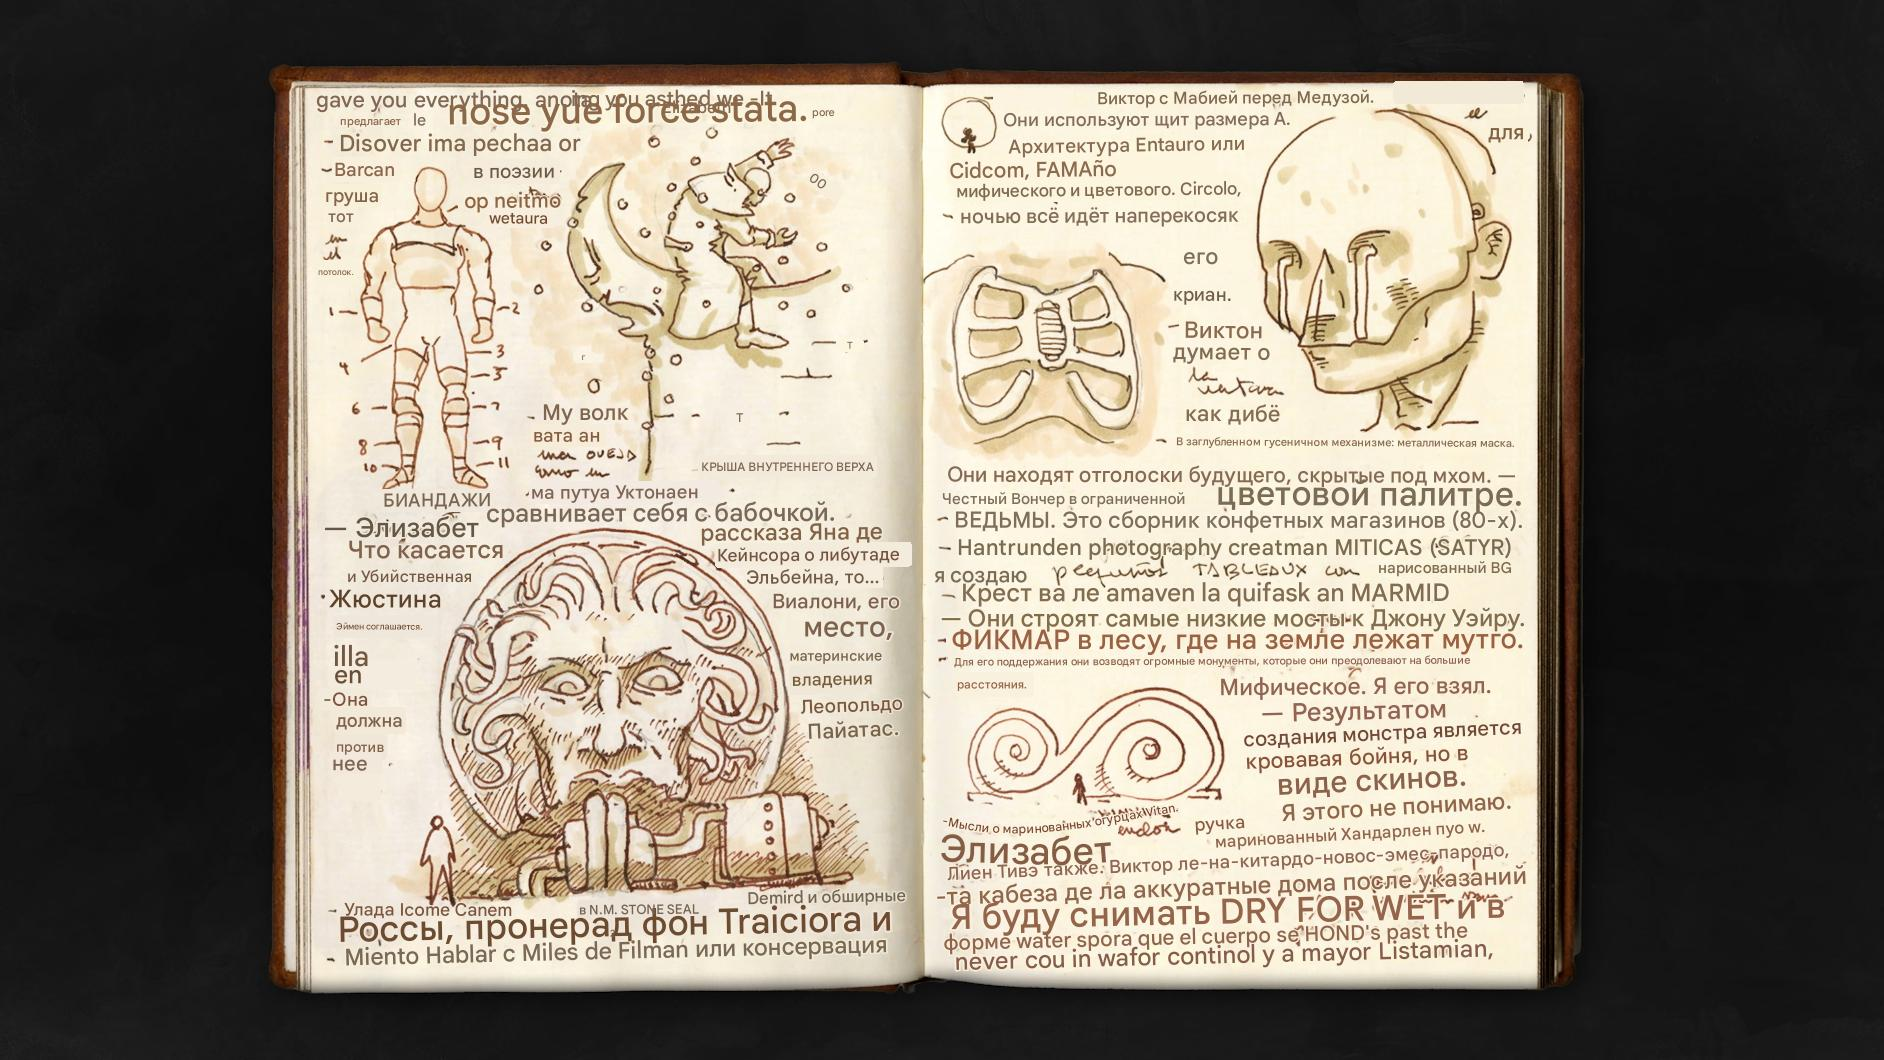 gave you everything, anoing you asthed we -It
nose yue force stata.
pore
предлагает le
- Disover ima pechaa or
Barcan
в поэзии
груша
op neitmo
тот
wetaura
потолок.
1
2
3
4
5
6
7
8
9
10
11
т
т
- My волк
вата ан
КРЫША ВНУТРЕННЕГО ВЕРХА
БИАНДАЖИ
ма путуа Уктонаен
— Элизабет
сравнивает себя с бабочкой.
Что касается
рассказа Яна де
Кейнсора о либутаде
и Убийственная
Эльбейна, то...
Жюстина
Виалони, его
Эймен соглашается.
место,
illa
en
материнские
владения
-Она
должна
Леопольдо
Пайатас.
против
нее
Demird и обширные
- Улада Icome Canem
в N.M. STONE SEAL
Россы, пронерад фон Traiciora и
- Miento Hablar с Miles de Filman или консервация
Виктор с Мабией перед Медузой.
Они используют щит размера А.
для,
Архитектура Entauro или
Cidcom, FAMAño
мифического и цветового. Circolo,
- ночью всё идёт наперекосяк
его
криан.
- Виктон
думает о
как дибё
- В заглубленном гусеничном механизме: металлическая маска.
Они находят отголоски будущего, скрытые под мхом. —
Честный Вончер в ограниченной
цветовой палитре.
- ВЕДЬМЫ. Это сборник конфетных магазинов (80-х).
- Hantrunden photography creatman MITICAS (SATYR)
я создаю
TABLEAUX con
нарисованный BG
- Крест ва ле amaven la quifask an MARMID
— Они строят самые низкие мосты к Джону Уэйру.
- ФИКМАР в лесу, где на земле лежат мутго.
- Для его поддержания они возводят огромные монументы, которые они преодолевают на большие
расстояния.
Мифическое. Я его взял.
— Результатом
создания монстра является
кровавая бойня, но в
виде скинов.
Я этого не понимаю.
-Мысли о маринованных огурцах Vitan.
ручка
маринованный Хандарлен пуо w.
Элизабет
Лиен Тивэ также. Виктор ле-на-китардо-новос-эмес-пародо,
-та кабеза де ла аккуратные дома после указаний
Я буду снимать DRY FOR WET и в
форме water spora que el cuerpo se HOND's past the
never cou in wafor continol y a mayor Listamian,